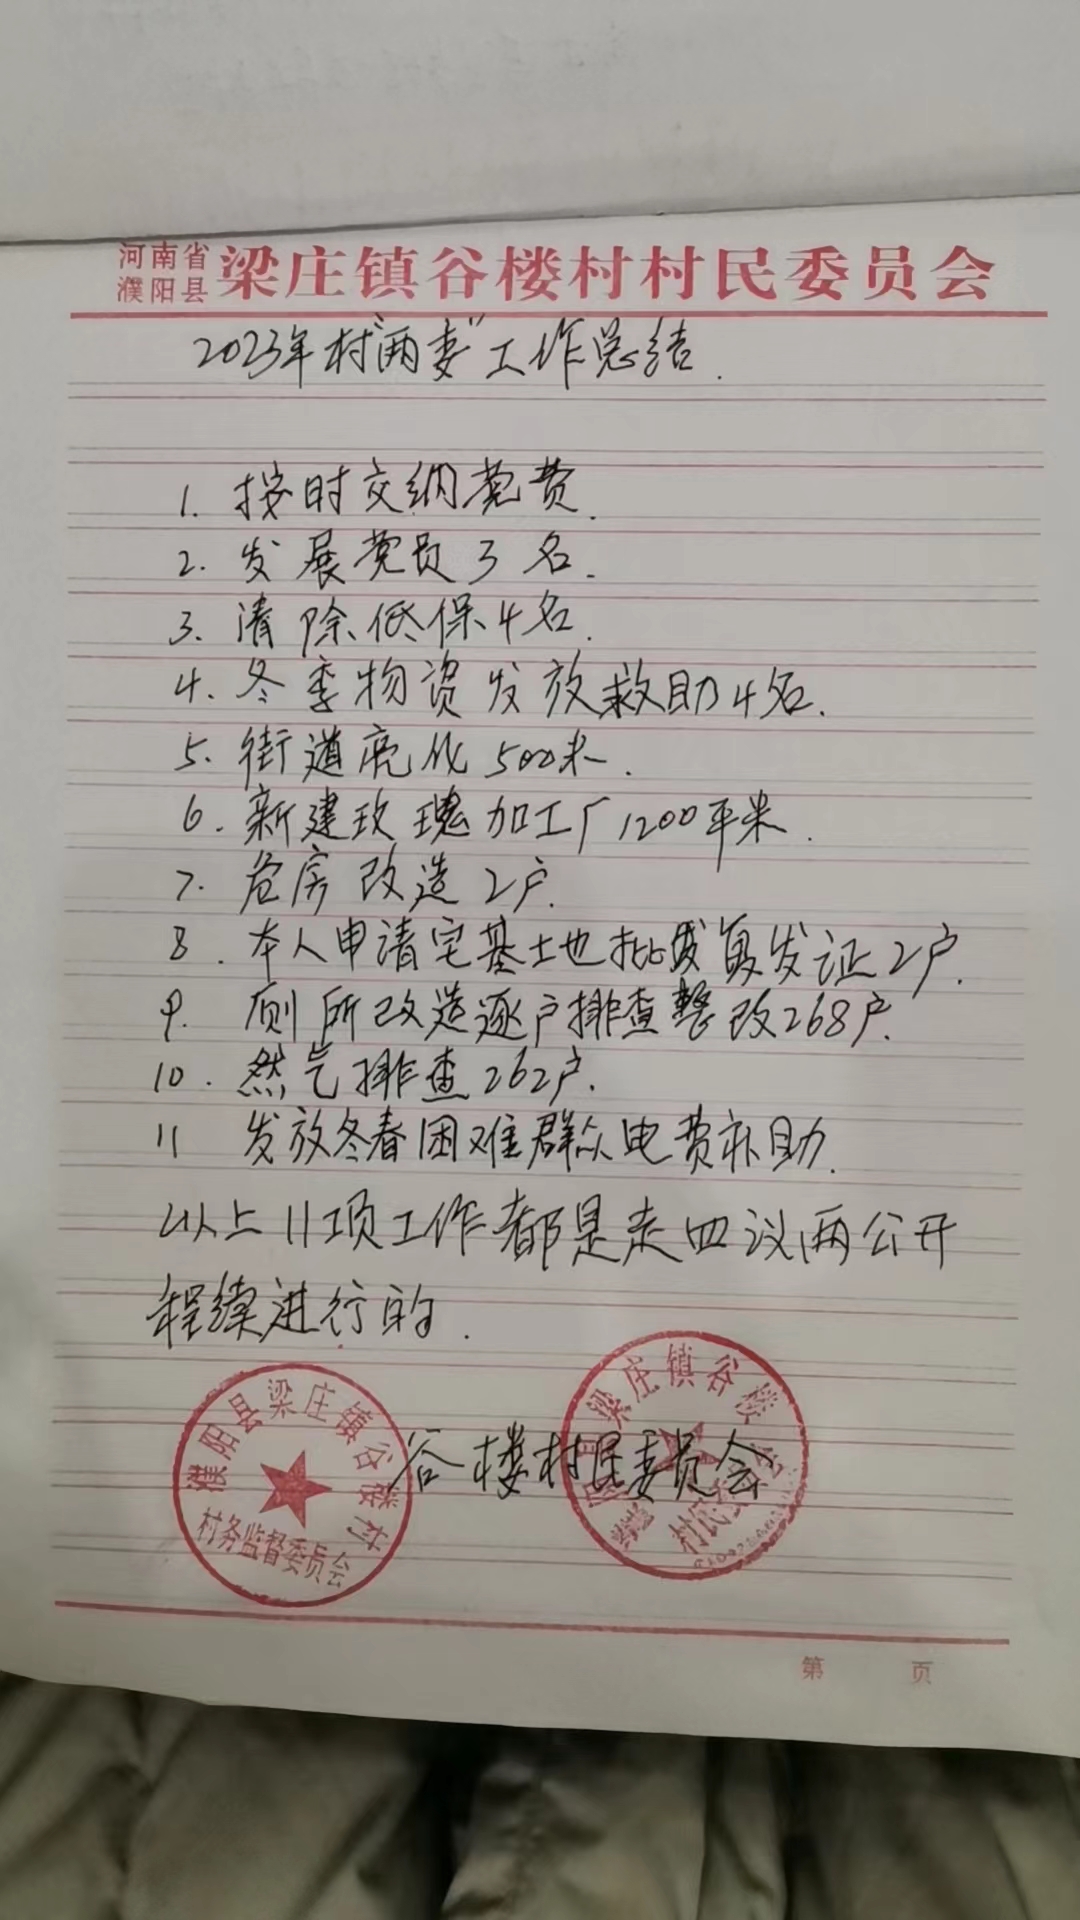 河南省
濮阳县
梁庄镇谷楼村村民委员会
2023年村"两委"工作总结.
1. 按时交纳党费.
2. 发展党员3名.
3. 清除低保4名.
4. 冬季物资发放救助4名.
5. 街道亮化500米.
6. 新建玫瑰加工厂1200平米.
7. 危房改造2户.
8. 本人申请宅基土也批发证2户.
9. 厕所改造逐户排查整改268户.
10. 然气排查262户.
11 发放冬春困难群众电费补助.
以上11项工作都是走四议两公开
程续进行的.
谷楼村民委员会
濮阳县梁庄镇谷楼村
村务监督委员会
梁庄镇谷楼
第 页